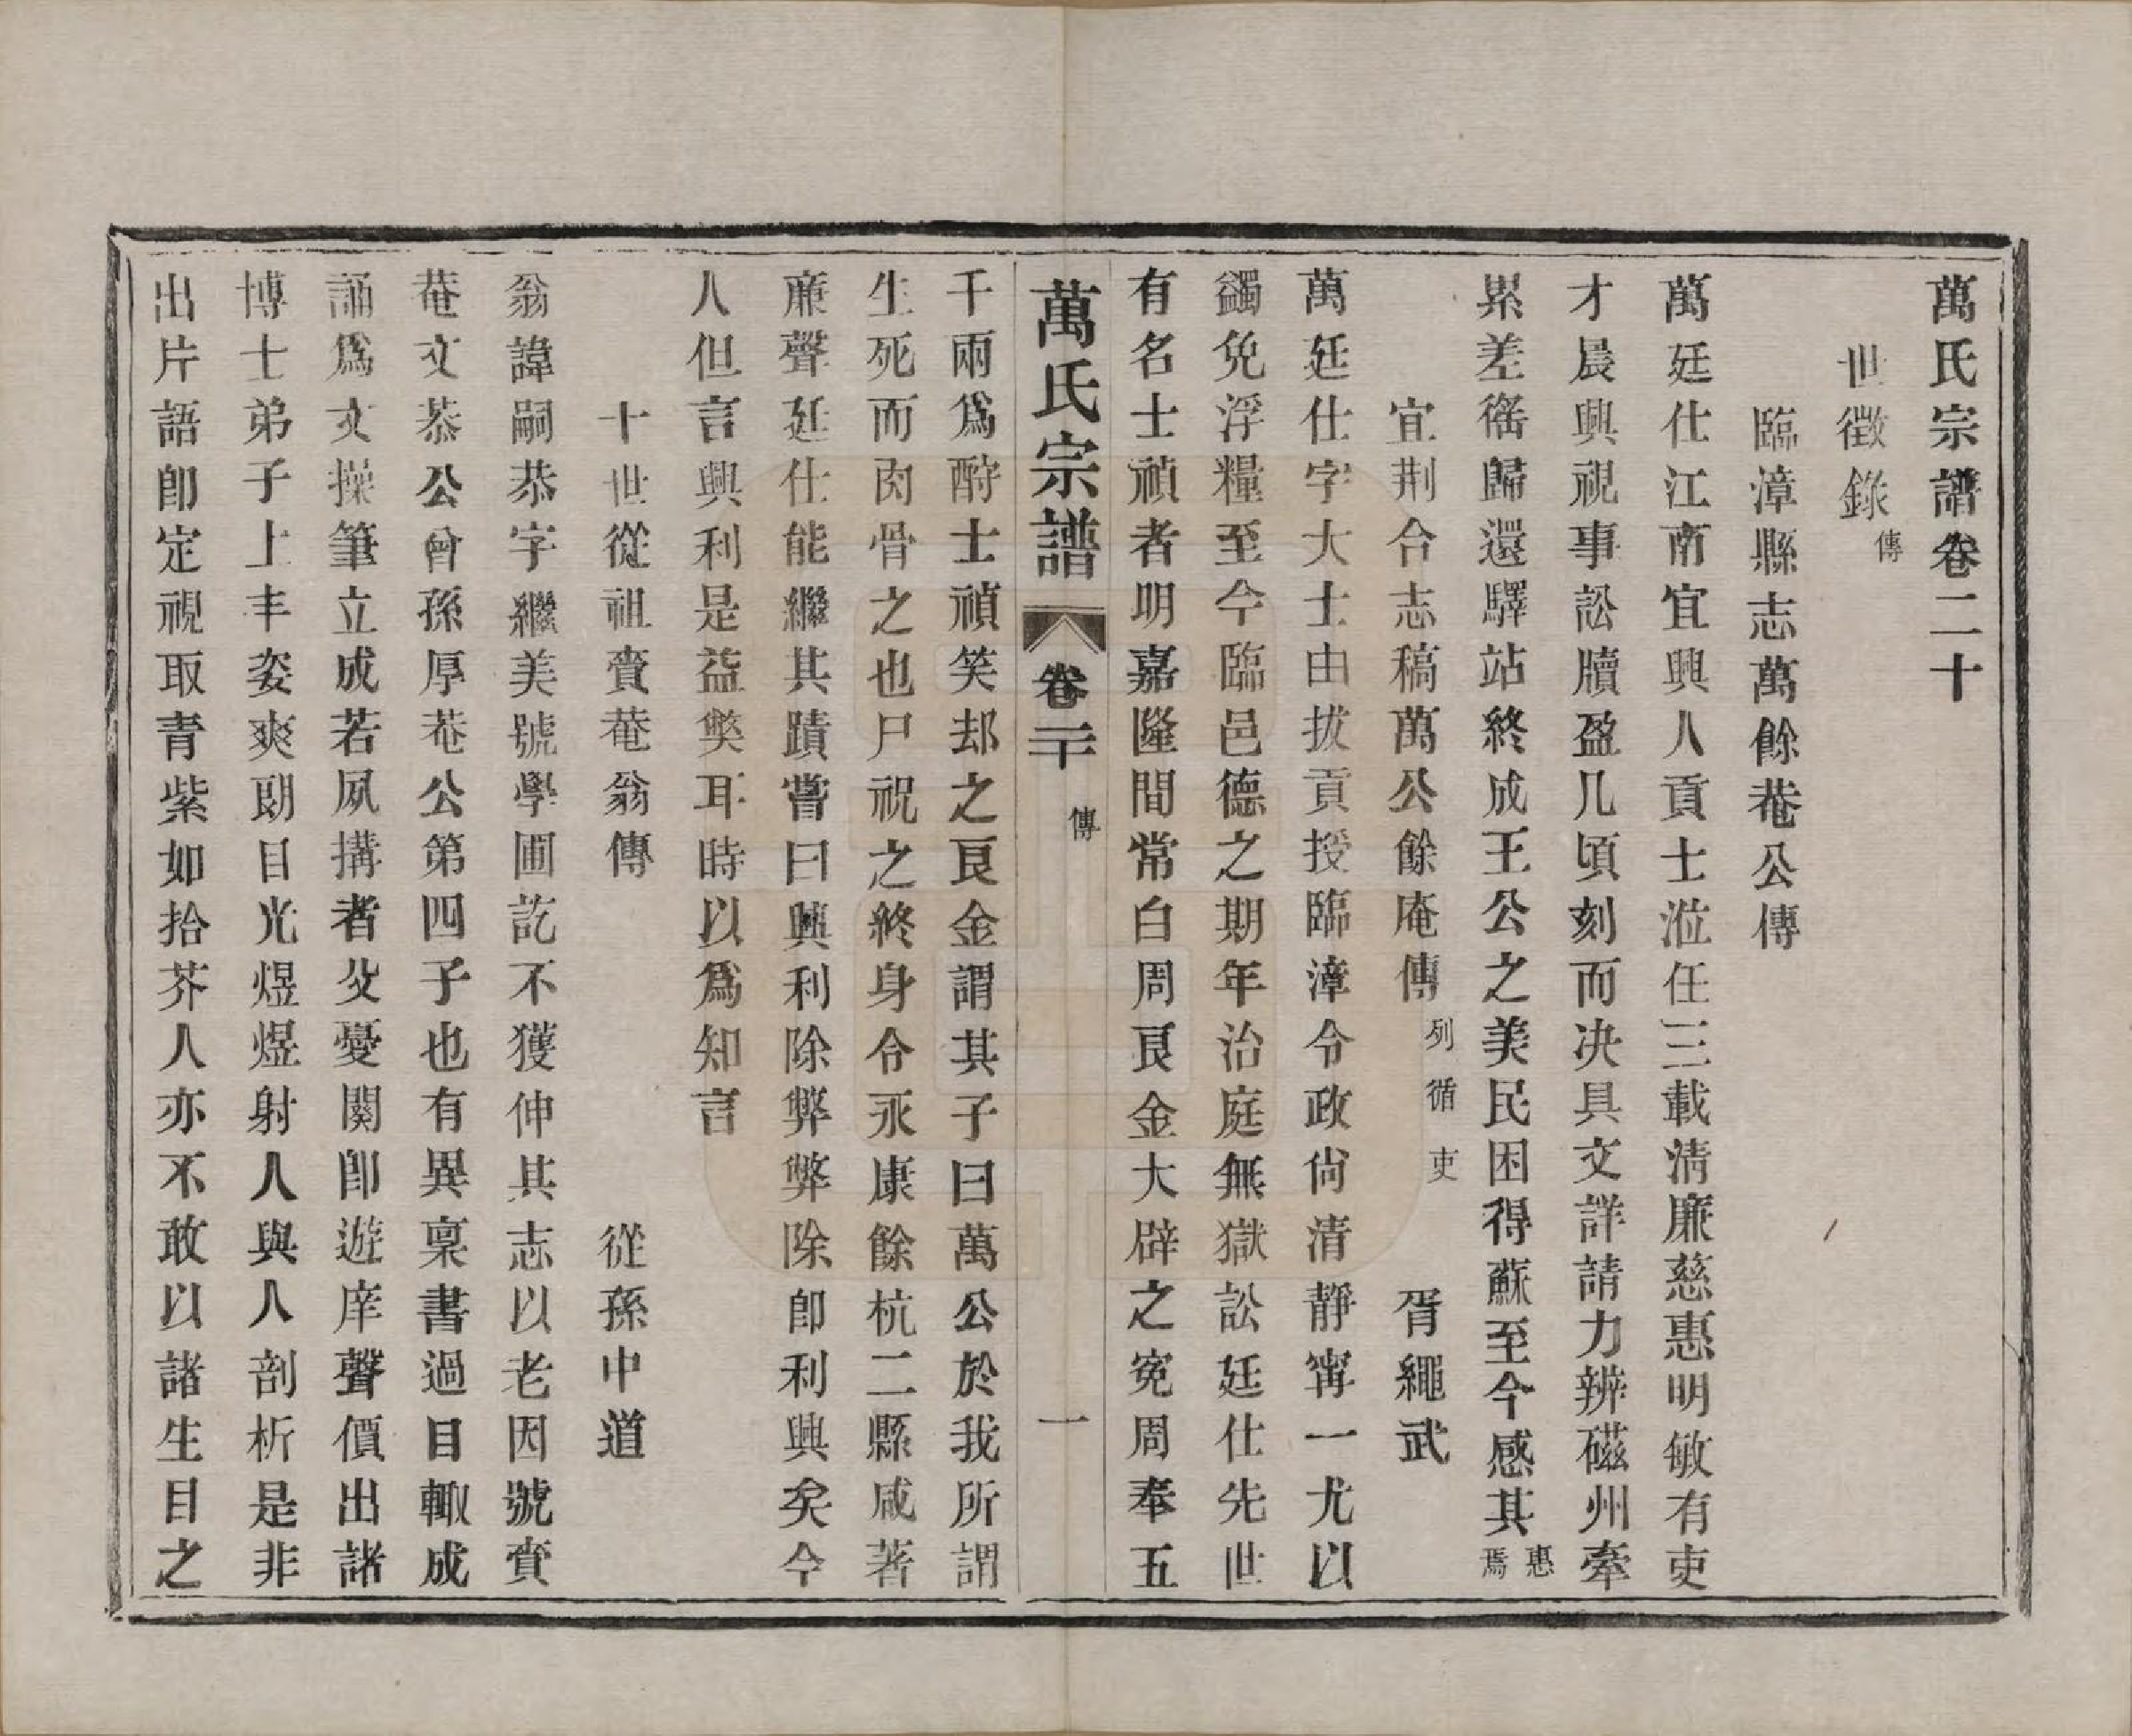 萬氏宗譜卷二十
世徵錄傳
臨漳縣志萬餘菴公傳
萬廷仕江南宜興人貢士涖任三載淸廉慈惠明敏有吏
才晨興視事訟牘盈几頃刻而决具文詳請力辨磁州牽
累差徭歸還驛站終成王公之美民困得蘇至今感其惠焉
宜荆合志稿萬公餘庵傳列循吏 胥繩武
萬廷仕字大士由拔貢授臨漳令政尙清靜甯一尤以
蠲免浮糧至今臨邑德之期年治庭無獄訟廷仕先世
有名士禎者明嘉隆間常白周良金大辟之寃周奉五
萬氏宗譜 卷二十 傳 一
千兩爲酧士禎笑却之良金謂其子曰萬公於我所謂
生死而肉骨之也尸祝之終身令永康餘杭二縣咸著
廉聲廷仕能繼其蹟嘗曰興利除弊弊除卽利興矣今
人但言興利是益弊耳時以爲知言
十世從祖賁菴翁傳 從孫中道
翁諱嗣恭字繼美號學圃訖不獲伸其志以老因號賁
菴文恭公曾孫厚菴公第四子也有異稟書過目輙成
誦爲文操筆立成若夙搆者父憂闋卽遊庠聲價出諸
博士弟子上丰姿爽朗目光煜煜射人與人剖析是非
出片語卽定視取青紫如拾芥人亦不敢以諸生目之